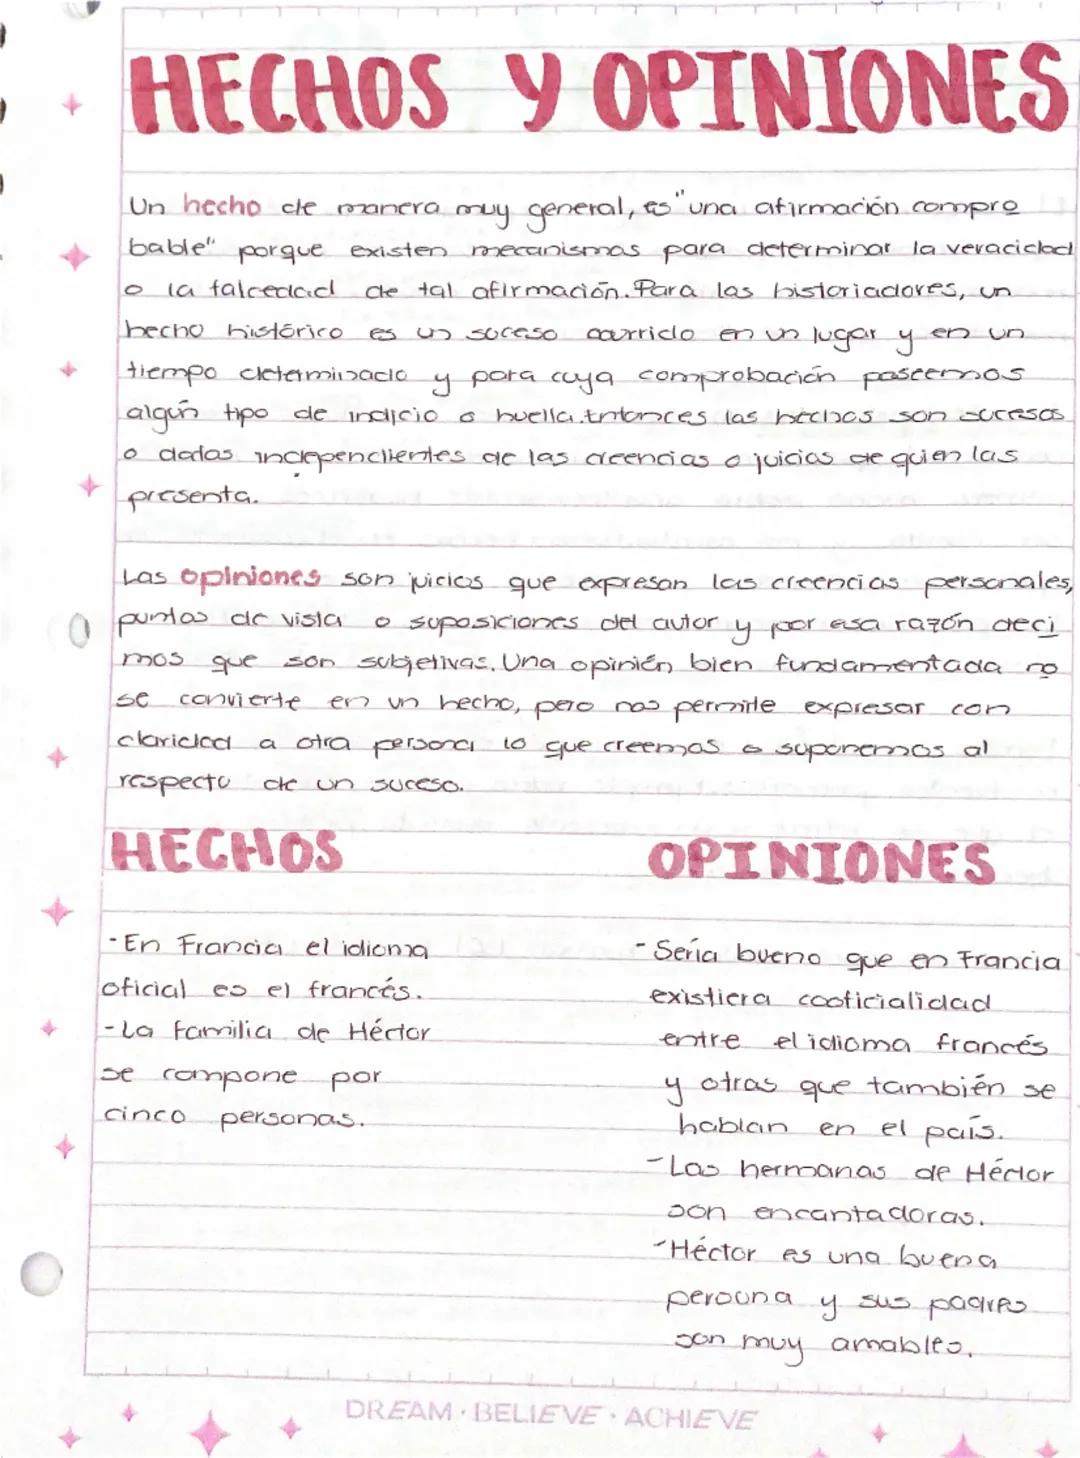 HECHOS Y OPINIONES
Un hecho de manera muy general, es "una afirmación compro
bable" porque existen mecanismos para determinar la veracidad
o la falcedad de tal afirmación. Para los historiadores, un
hecho histórico es un suceso ocurrido en un lugar y en un
tiempo determinado y para cuya comprobación poseemos
algún tipo de indicio o huella. Entonces los hechos son sucesos
o datos independientes de las creencias o juicios de quien los
presenta.
Las opiniones son juicios que expresan las creencias personales,
puntos de vista o suposiciones del autor y por esa razón deci
mos que son subjetivas. Una opinión bien fundamentada no
se convierte en un hecho, pero nos permite expresar con
claridad a otra persona lo que creemos o suponemos al
respecto de un suceso.
HECHOS
- En Francia el idioma
oficial es el francés.
- La familia de Héctor
se compone por
cinco personas.
OPINIONES
- Sería bueno que en Francia
existiera cooficialidad
entre el idioma francés
y otras que también se
hablan en el país.
- Las hermanas de Héctor
son encantadoras.
- Héctor es una buena
persona y sus padres
son muy amables.
DREAM · BELIEVE · ACHIEVE